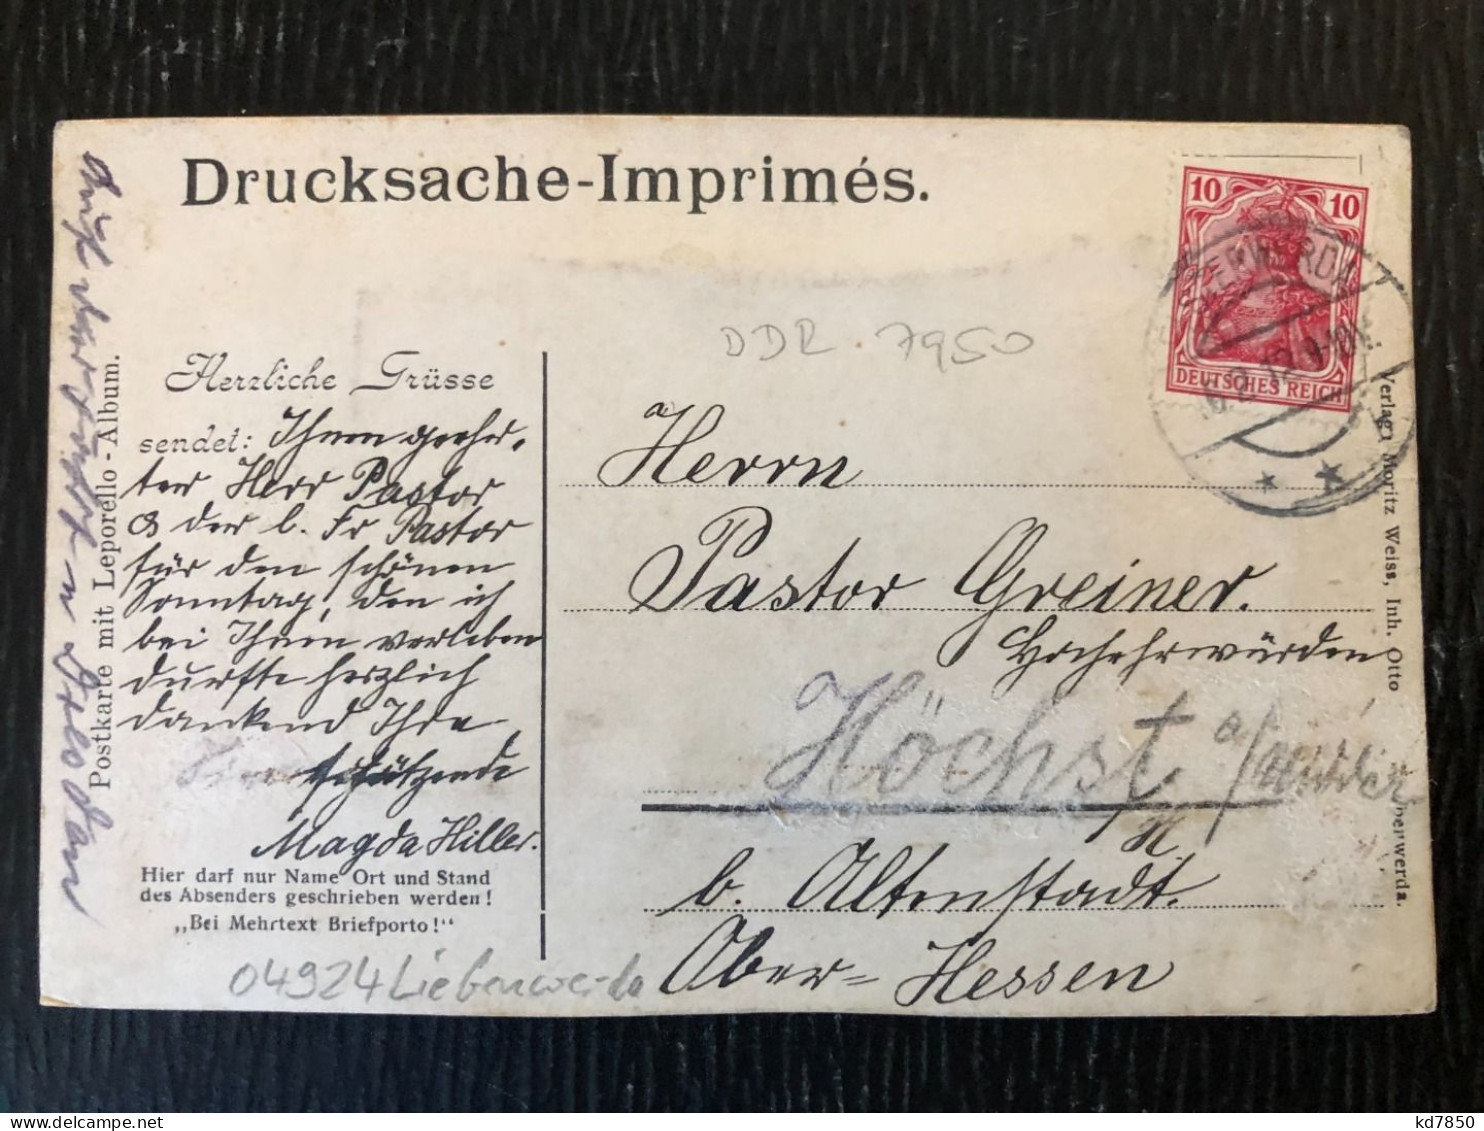 Drucksache-Imprimés.
10 10
DEUTSCHES REICH
DDR 7950
Herzliche Grüsse
sendet: Ihnen geehr-
ter Herr Pastor
& der l. Fr Pastor
für den schönen
Sonntag, den ich
bei Ihnen verleben
durfte herzlich
dankend Ihre
schätzende
Magda Hiller.
Hier darf nur Name Ort und Stand
des Absenders geschrieben werden!
„Bei Mehrtext Briefporto!“
Herrn
Pastor Greiner.
Hochehrwürden
Höchst a/Nidder
b. Altenstadt.
Ober-Hessen
04924 Liebenwerda
Postkarte mit Leporello-Album.
Verlag: Moritz Weiss, Inh. Otto
berwerda.